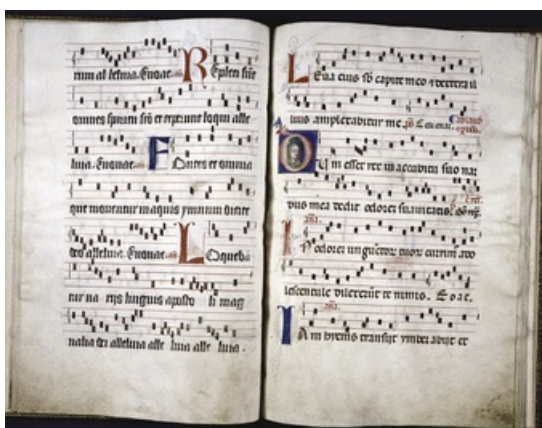 rum al leluia. Euouae. Repleti sūt
omnes spiritu scō et ceperunt loqui alle
luia. Euouae. Fontes et omnia
que mouentur in aquis ymnum dicite
deo alleluia. Euouae. Loqueba
tur ua riis linguis aposto li mag
nalia dei alleluia alle luia alle luia.
Leua eius sb capite meo et dextera il
lius amplexabitur me. ps
Dum esset rex in accubitu suo nar
dus mea dedit odorem suauitatis.
In odorem tuor currim ado
lescentule dilexerūt te nimis. Eoae.
Iam hyems transiit ymber abiit et